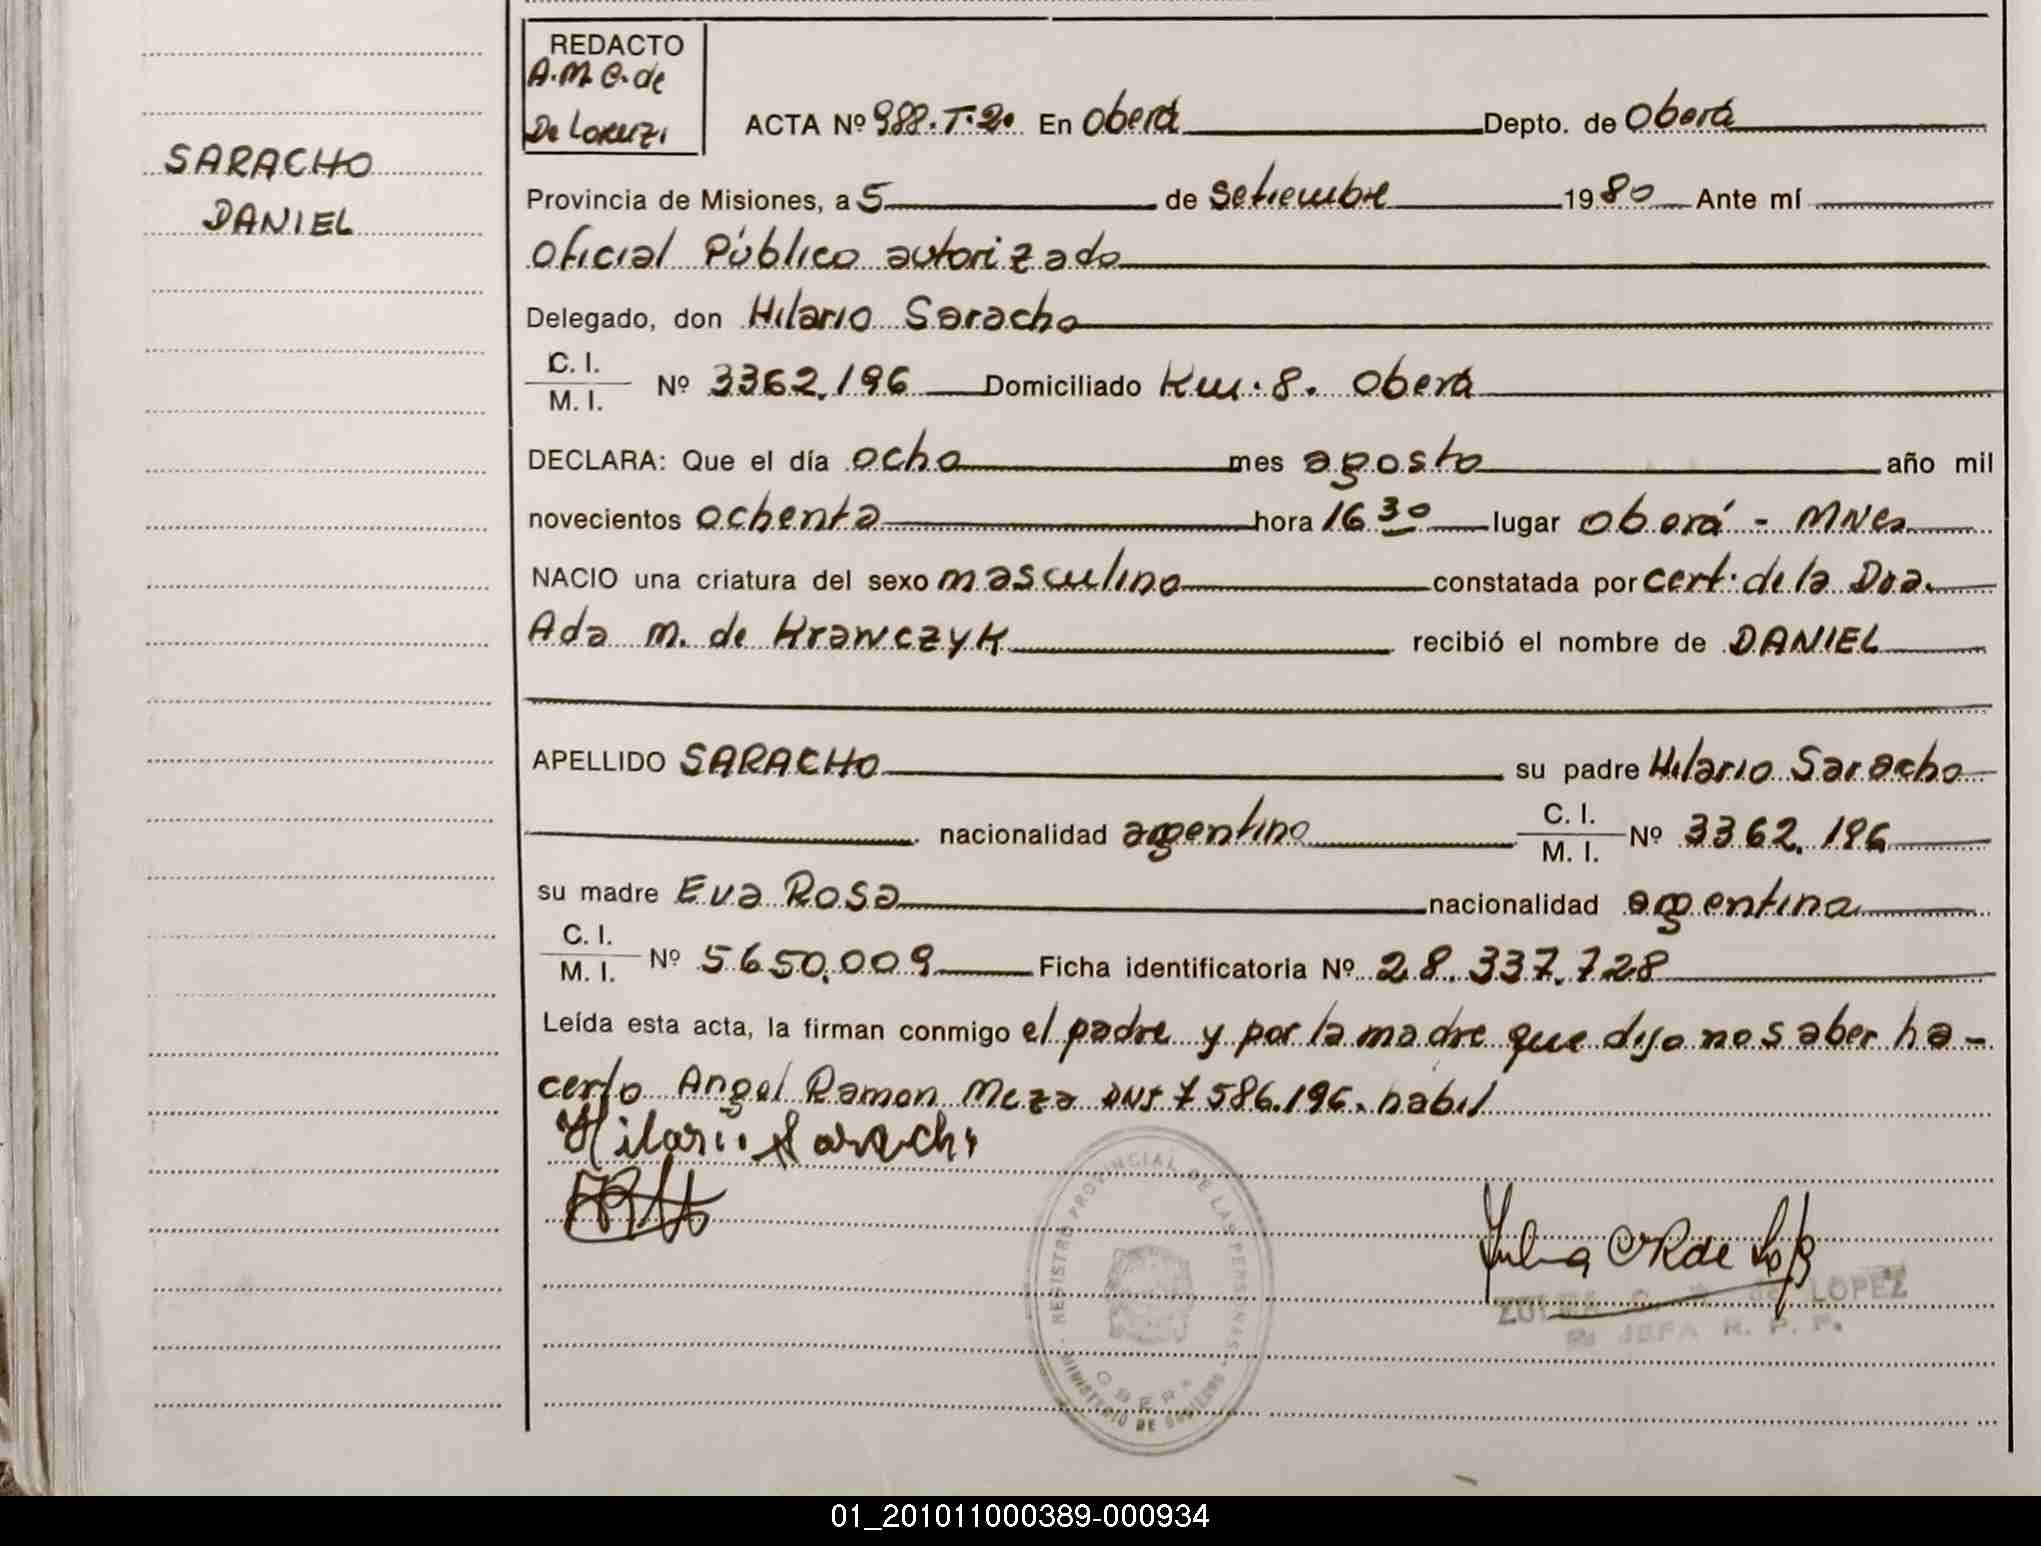 REDACTO
A.M.C. de
De Lorenzi
ACTA Nº 988.T.2º En Oberá Depto. de Oberá
SARACHO
DANIEL
Provincia de Misiones, a 5 de setiembre 1980 Ante mí
Oficial Público autorizado
Delegado, don Hilario Saracho
C. I.
M. I. Nº 3362.196 Domiciliado Km. 8. Oberá
DECLARA: Que el día ocho mes agosto año mil
novecientos ochenta hora 16 30 lugar Oberá - Mnes
NACIO una criatura del sexo masculino constatada por cert. de la Dra.
Ada M. de Krawczyk recibió el nombre de DANIEL
APELLIDO SARACHO su padre Hilario Saracho
nacionalidad argentino C. I.
M. I. Nº 3362.196
su madre Eva Rosa nacionalidad argentina
C. I.
M. I. Nº 5650.009 Ficha identificatoria Nº 28.337.728
Leída esta acta, la firman conmigo el padre y por la madre que dijo no saber ha-
cerlo Angel Ramon Meza DNI 7586.196. habil
Hilario Saracho
REGISTRO PROVINCIAL DE LAS PERSONAS
MINISTERIO DE GOBIERNO
OBERA
de LOPEZ
JEFA R. P. P.
01_201011000389-000934